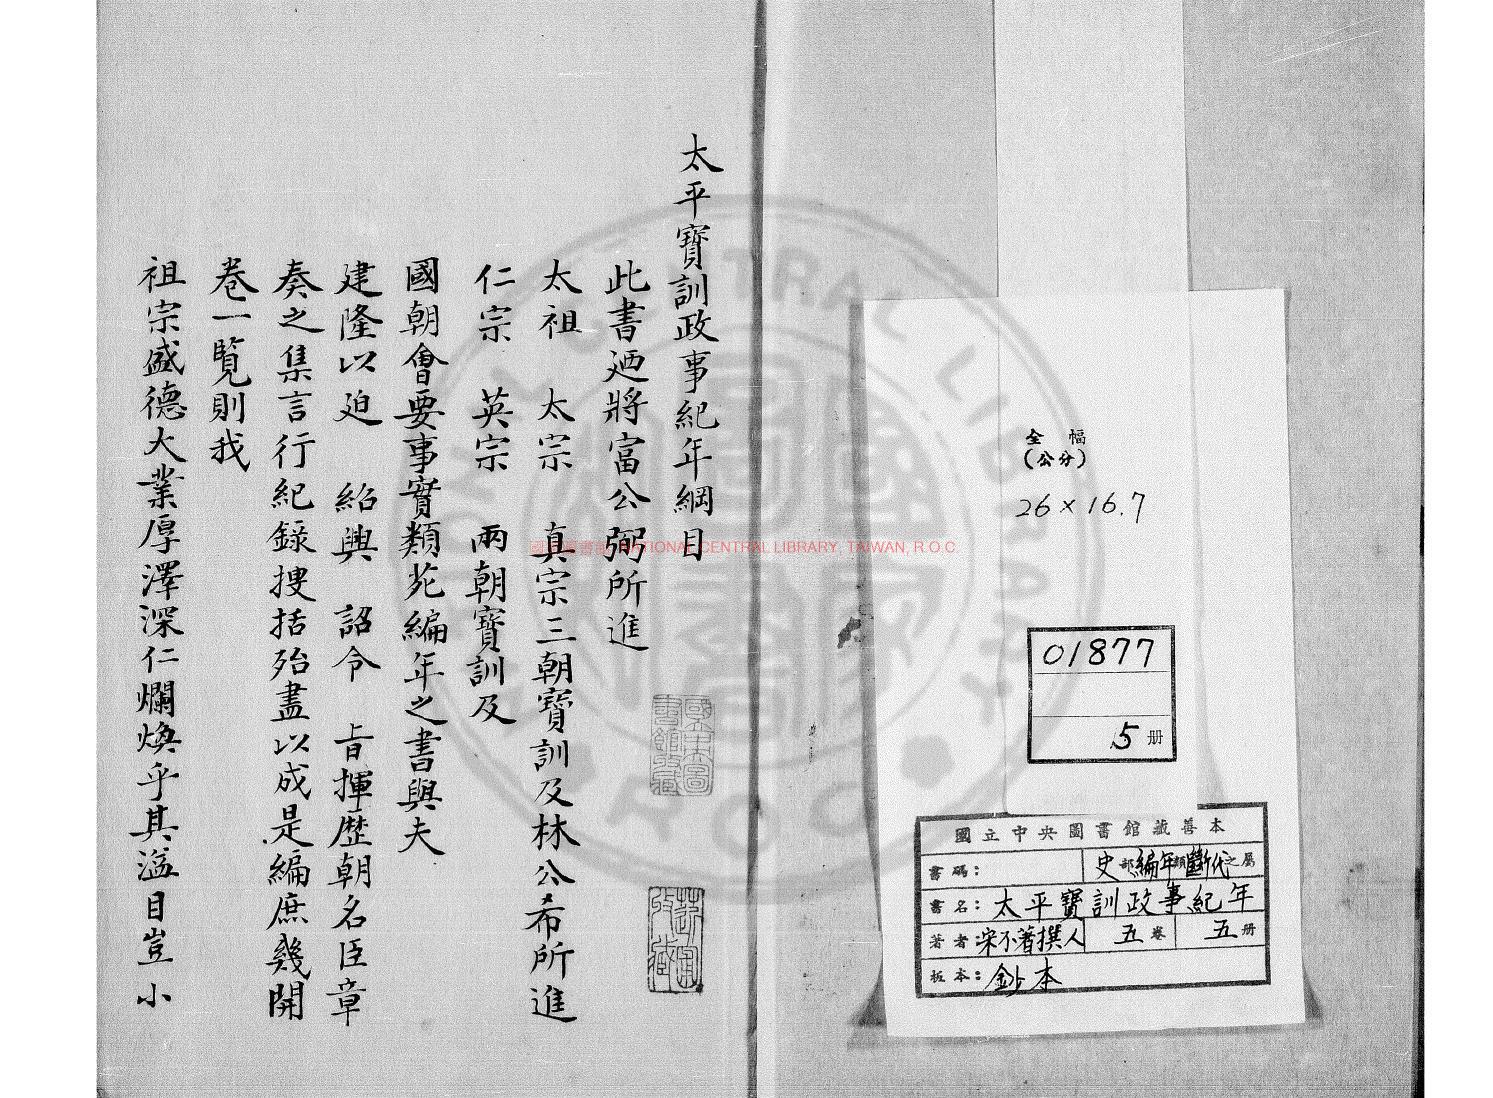 全幅
(公分)
26×16.7
01877
5册
國立中央圖書館藏善本
書碼：　史部編年類斷代之屬
書名：太平寶訓政事紀年
著者：宋不著撰人　五卷　五册
板本：鈔本
太平寶訓政事紀年綱目
此書廼將富公弼所進
太祖　太宗　真宗三朝寶訓及林公希所進
仁宗　英宗　兩朝寶訓及
國朝會要事實類苑編年之書與夫
建隆以迨　紹興　詔令　旨揮歷朝名臣章
奏之集言行紀錄搜括殆盡以成是編庶幾開
卷一覽則我
祖宗盛德大業厚澤深仁爛煥乎其溢目豈小
國立中央圖書館收藏
國家圖書館 NATIONAL CENTRAL LIBRARY, TAIWAN, R.O.C.